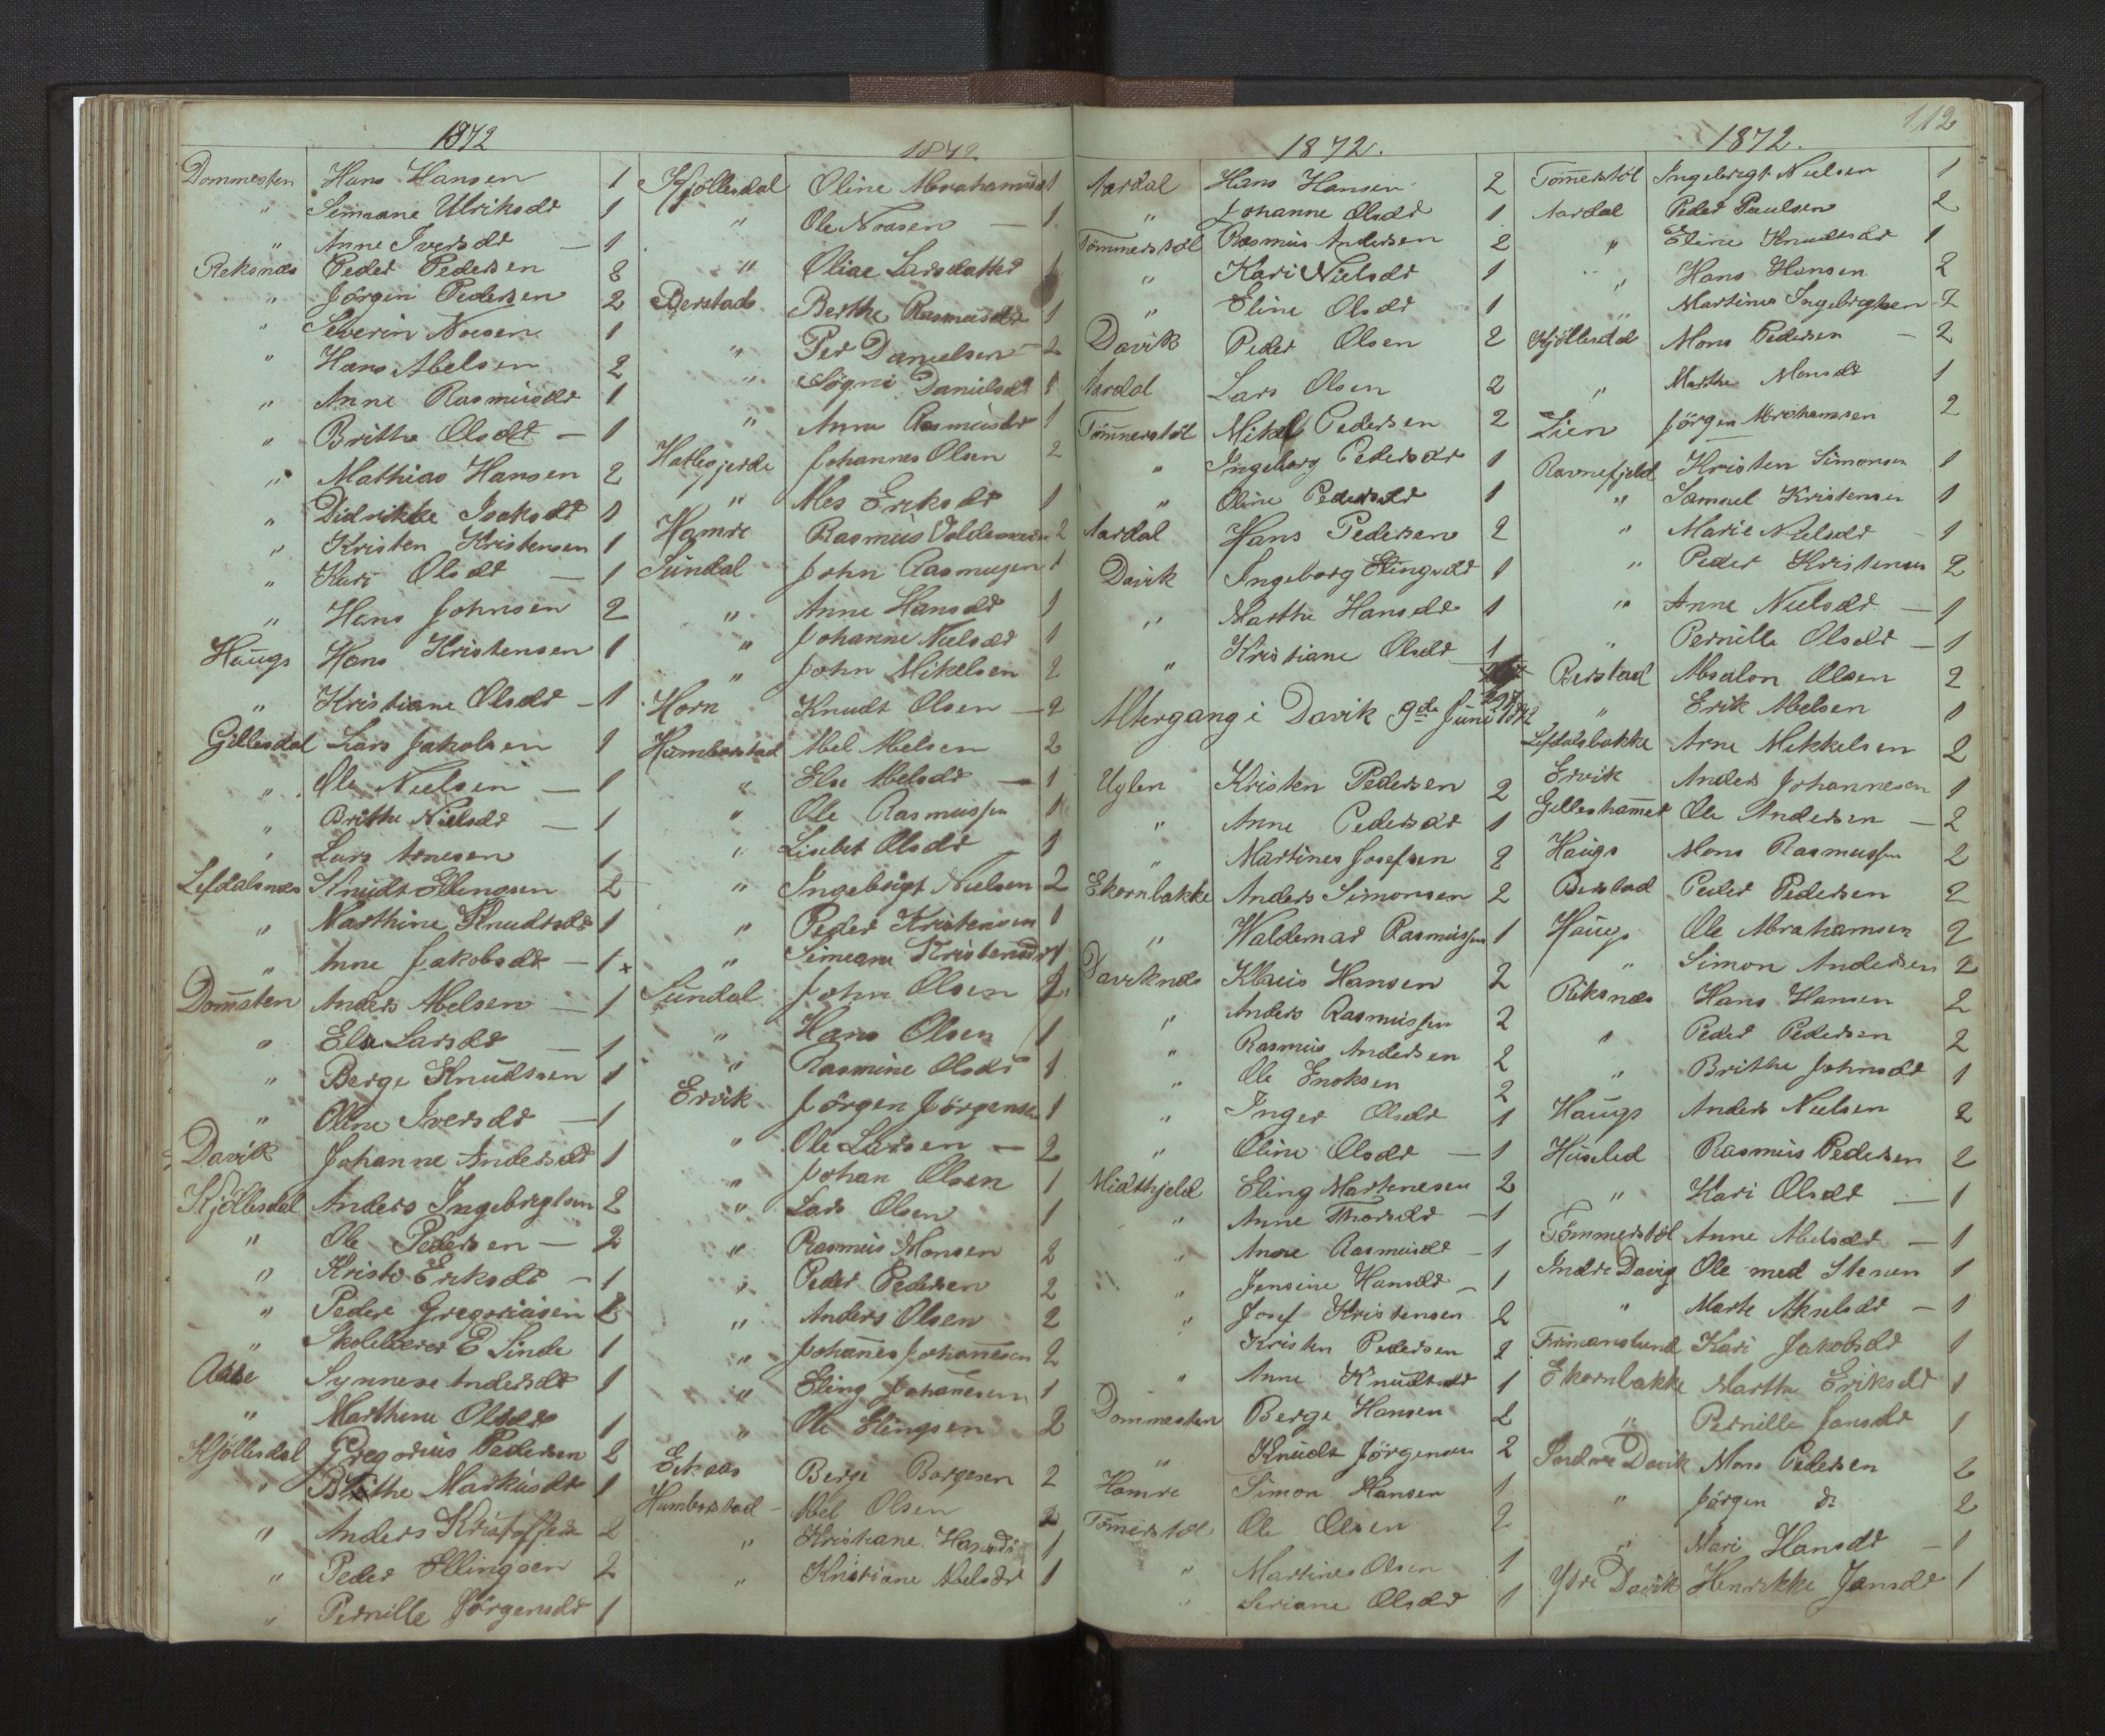 1872
Dommesten Hans Hansen 1
" Simeane Ulriksdr 1
" Anne Iversdr — 1
Reksnæs Peder Pedersen 2
" Jörgen Pedersen 2
" Severin Noesen 1
" Hans Abelsen 2
" Anne Rasmusdr 1
" Brithe Olsdr — 1
" Mathias Hansen 2
" Didrikke Isaksdr 1
" Kristen Kristensen 1
" Kari Olsdr — 1
" Hans Johnsen 2
Haugs Hans Kristensen 1
" Kristiane Olsdr — 1
Gillesdal Lars Jakobsen 1
" Ole Nielsen — 1
" Brithe Nielsdr — 1
" Lars Arnesen 1
Lefdalsnæs Knudt Ellingsen 2
" Marthine Knudtsdr 1
" Anne Jakobsdr — 1 x
Domsten Anders Abelsen — 1
" Else Larsdr — 1
" Berge Knudssen 1
" Oline Iversdr — 1
Davik Johanne Andersdr 1
Kjöllesdal Anders Ingebrigtsen 2
" Ole Pedersen — 2
" Eriksdr — 1
" Peder Gregoriusen 2
" Skolelærer E Linde 1
Aase Synneve Andersdr 1
" Marthine Olsdr 1
Kjöllesdal Gregorius Pedersen 2
" Brithe Markusdr 1
" Anders Kristoffersen 2
" Peder Ellingsen 2
" Pernille Jörgensdr 1
1872.
Kjöllesdal Oline Abrahamsdr 1
" Ole Noesen — 1
" Larsdatter 1
Berstad Berthe Rasmusdr 1
" Per Danielsen — 2
" Sögni Danielsdr 1
" Anne Rasmusdr 1
Hatlegjerde Johannes Olsen 2
" Ales Eriksdr 1
Hamre Rasmus Valdemarsen 2
Sundal John Rasmusen 1
" Anne Hansdr 1
" Johanne Nielsdr 1
" John Mikelsen 2
Horn Knudt Olsen — 2
Humborstad Abel Abelsen 2
" Else Abelsdr — 1
" Ole Rasmussen 1
" Lisebet Olsdr 1
" Ingebrigt Nielsen 2
" Peder Kristensen 1
" Simeane Kristensdr 1
Sundal John Olsen 2
" Hans Olsen 1
" Rasmine Olsdr 1
Ervik Jörgen Jörgensen 1
" Ole Larsen — 2
" Johan Olsen 1
" Lars Olsen 1
" Rasmus Monsen 2
" Peder Pedersen 2
" Anders Olsen 2
" Johannes Johannesen 2
" Eling Johannesen 1
" Ole Elingsen 2
Eikaas Berge Borgesen 2
Humborstad — Abel Olsen 2
" Kristiane Hansdr 1
" Kristiane Abelsdr 1
1872.
Aardal Hans Hansen 2
" Johanne Olsdr 1
Tömmerstöl Rasmus Andersen 2
" Kari Nielsdr 1
" Eline Olsdr 1
Davik Peder Olsen 2
Aardal Lars Olsen 2
Tömmerstöl Mikel Pedersen 2
" Ingeborg Pedersdr 1
" Oline Pedersdr 1
Aardal Hans Pedersen 2
Davik Ingeborg Elingsdr 1
" Marthe Hansdr 1
" Kristiane Olsdr 1
Altergang i Davik 9de Juni 1872
Uglen Kristen Pedersen 2
" Anne Pedersdr 1
" Martines Josefsen 2
Ekornbakke Anders Simonsen 2
" Waldemar Rasmussen 1
Daviknæs Klaus Hansen 2
" Anders Rasmussen 2
" Rasmus Andersen 2
" Ole Enoksen 2
" Inger Olsdr 1
" Oline Olsdr — 1
Midthjeld Eling Martinesen 2
" Anne Thorsdr — 1
" Anne Rasmusdr — 1
" Jensine Hansdr — 1
" Josef Kristensen 2
Kristen Pedersen 2
" Anne Knudtsdr 1
Dommesten Berge Hansen 2
" Knudt Jörgensen 2
Hamre Simon Hansen 1
Tömerstöl Ole Olsen 2
" Martines Olsen 1
" Seriane Olsdr 1
112
1872.
Tömmerstöl Ingebrigt Nielsen 1
Aardal Peder Paulsen 2
" Eline Knudtsdr 1
" Hans Hansen 2
" Martines Ingebrigtsen 2
Kjöllesdal Mons Pedersen — 2
" Marthe Monsdr 1
Lien Jörgen Abrahamsen 2
Ravnefjeld Kristen Simonsen 1
" Samuel Kristensen 1
" Marie Nielsdr — 1
" Peder Kristensen 2
" Anne Nielsdr — 1
" Pernille Olsdr — 1
Berstad Absalon Olsen 2
" Erik Abelsen 1
Lefdalsbakke Arne Mikkelsen 2
Ervik Anders Johannesen 1
Gilleshammer Ole Andersen — 2
Haugs Mons Rasmussen 2
Berstad Peder Pedersen 2
Haugs Ole Abrahamsen 2
" Simon Andersen 2
Reksnæs Hans Hansen 2
" Peder Pedersen 2
" Brithe Johnsdr 1
Haugs Anders Nielsen 2
Huseled Rasmus Pedersen 2
" Kari Olsdr — 1
Tömmerstöl Anne Abelsdr — 1
Indre Davig Ole med Stenen 1
" Marte Akselsdr — 1
Frimanslund Kari Jakobsdr 1
Ekornbakke Marthe Eriksdr 1
" Pernille Jansdr 1
Indre Davik Mons Pedersen 2
" Jörgen ds 2
" Mari Hansdr — 1
Ytre Davik Henrikke Jansdr 1